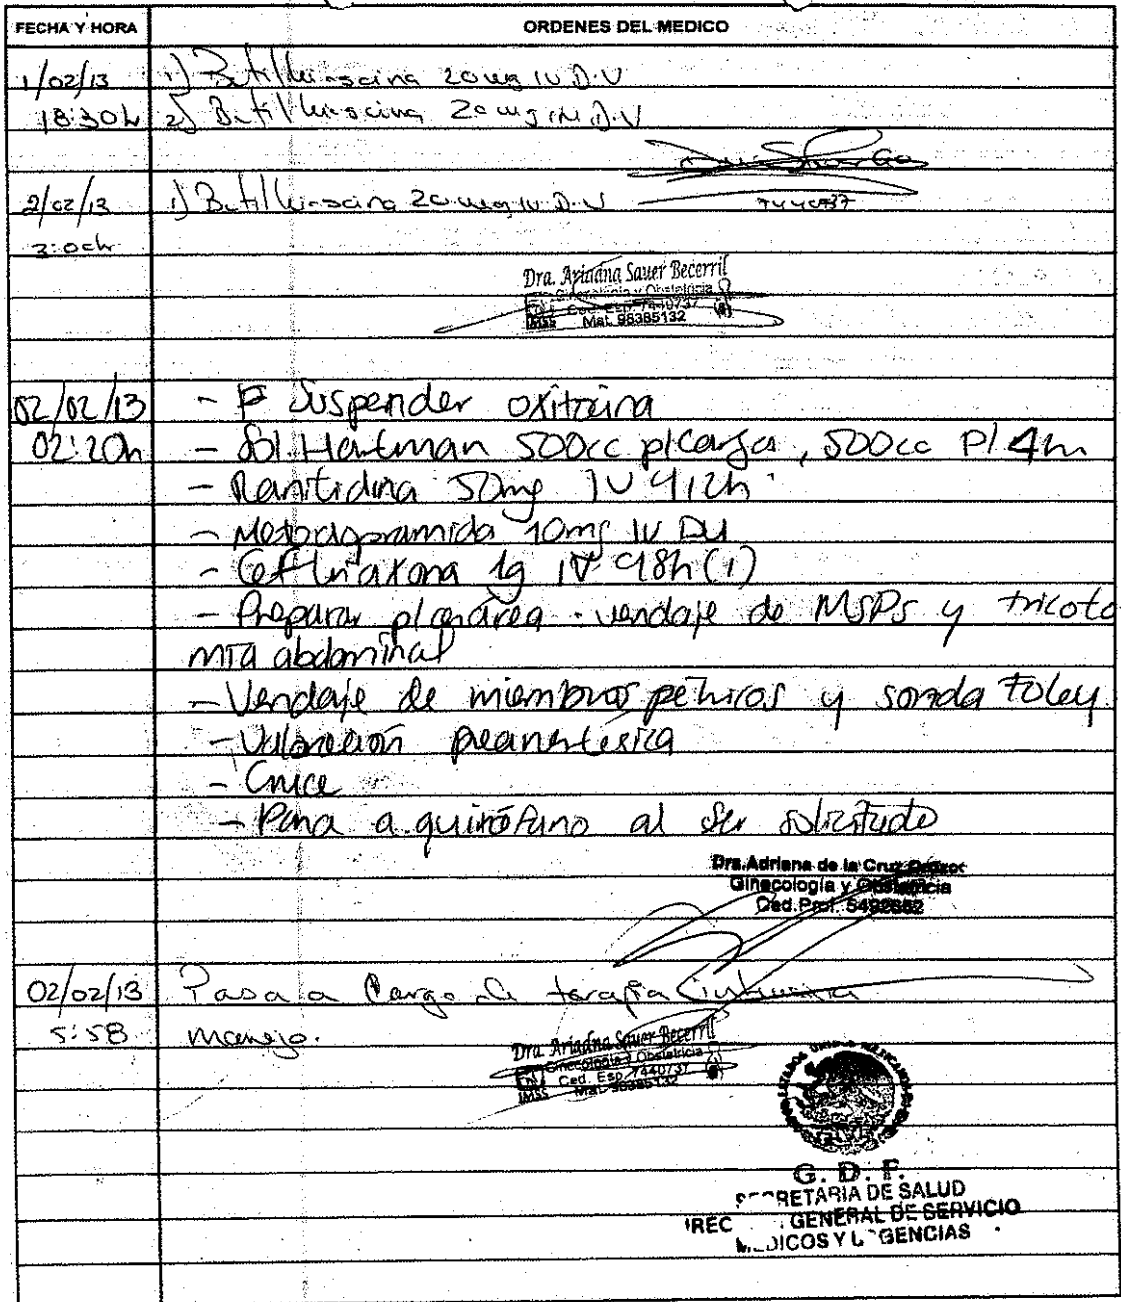 FECHA Y HORA ORDENES DEL MEDICO
1/02/13 1) Butilhioscina 20 mg IV D.U
18:30h 2) Butilhioscina 20 mg IM D.U
2/02/13 1) Butilhioscina 20 mg IV D.U 7440737
3:00hr
Dra. Ariadna Sauer Becerril
Ginecología y Obstetricia
Ced. Esp. 7440737
IMSS Mat. 98385132
02/02/13 - Suspender oxitocina
02:20h - Sol. Hartman 500cc p/carga, 500cc p/ 4h
- Ranitidina 50mg IV c/12h
- Metoclopramida 10mg IV DU
- Ceftriaxona 1g IV c/8h (1)
- Preparar área vendaje de MsPs y tricoto
mía abdominal
- Vendaje de miembros pélvicos y sonda Foley.
- Valoración preanestésica
- Cruce
- Pasa a quirófano al ser solicitado
Dra. Adriana de la Cruz
Ginecología y Obstetricia
Ced. Prof. 5492662
02/02/13 Pasa a Cargo de terapia intensiva
5:58 manejo.
Dra. Ariadna Sauer Becerril
Ginecología y Obstetricia
Ced. Esp. 7440737
IMSS Mat. 98385132
ESTADOS UNIDOS MEXICANOS
G. D. F.
SECRETARIA DE SALUD
GENERAL DE SERVICIO
MEDICOS Y URGENCIAS